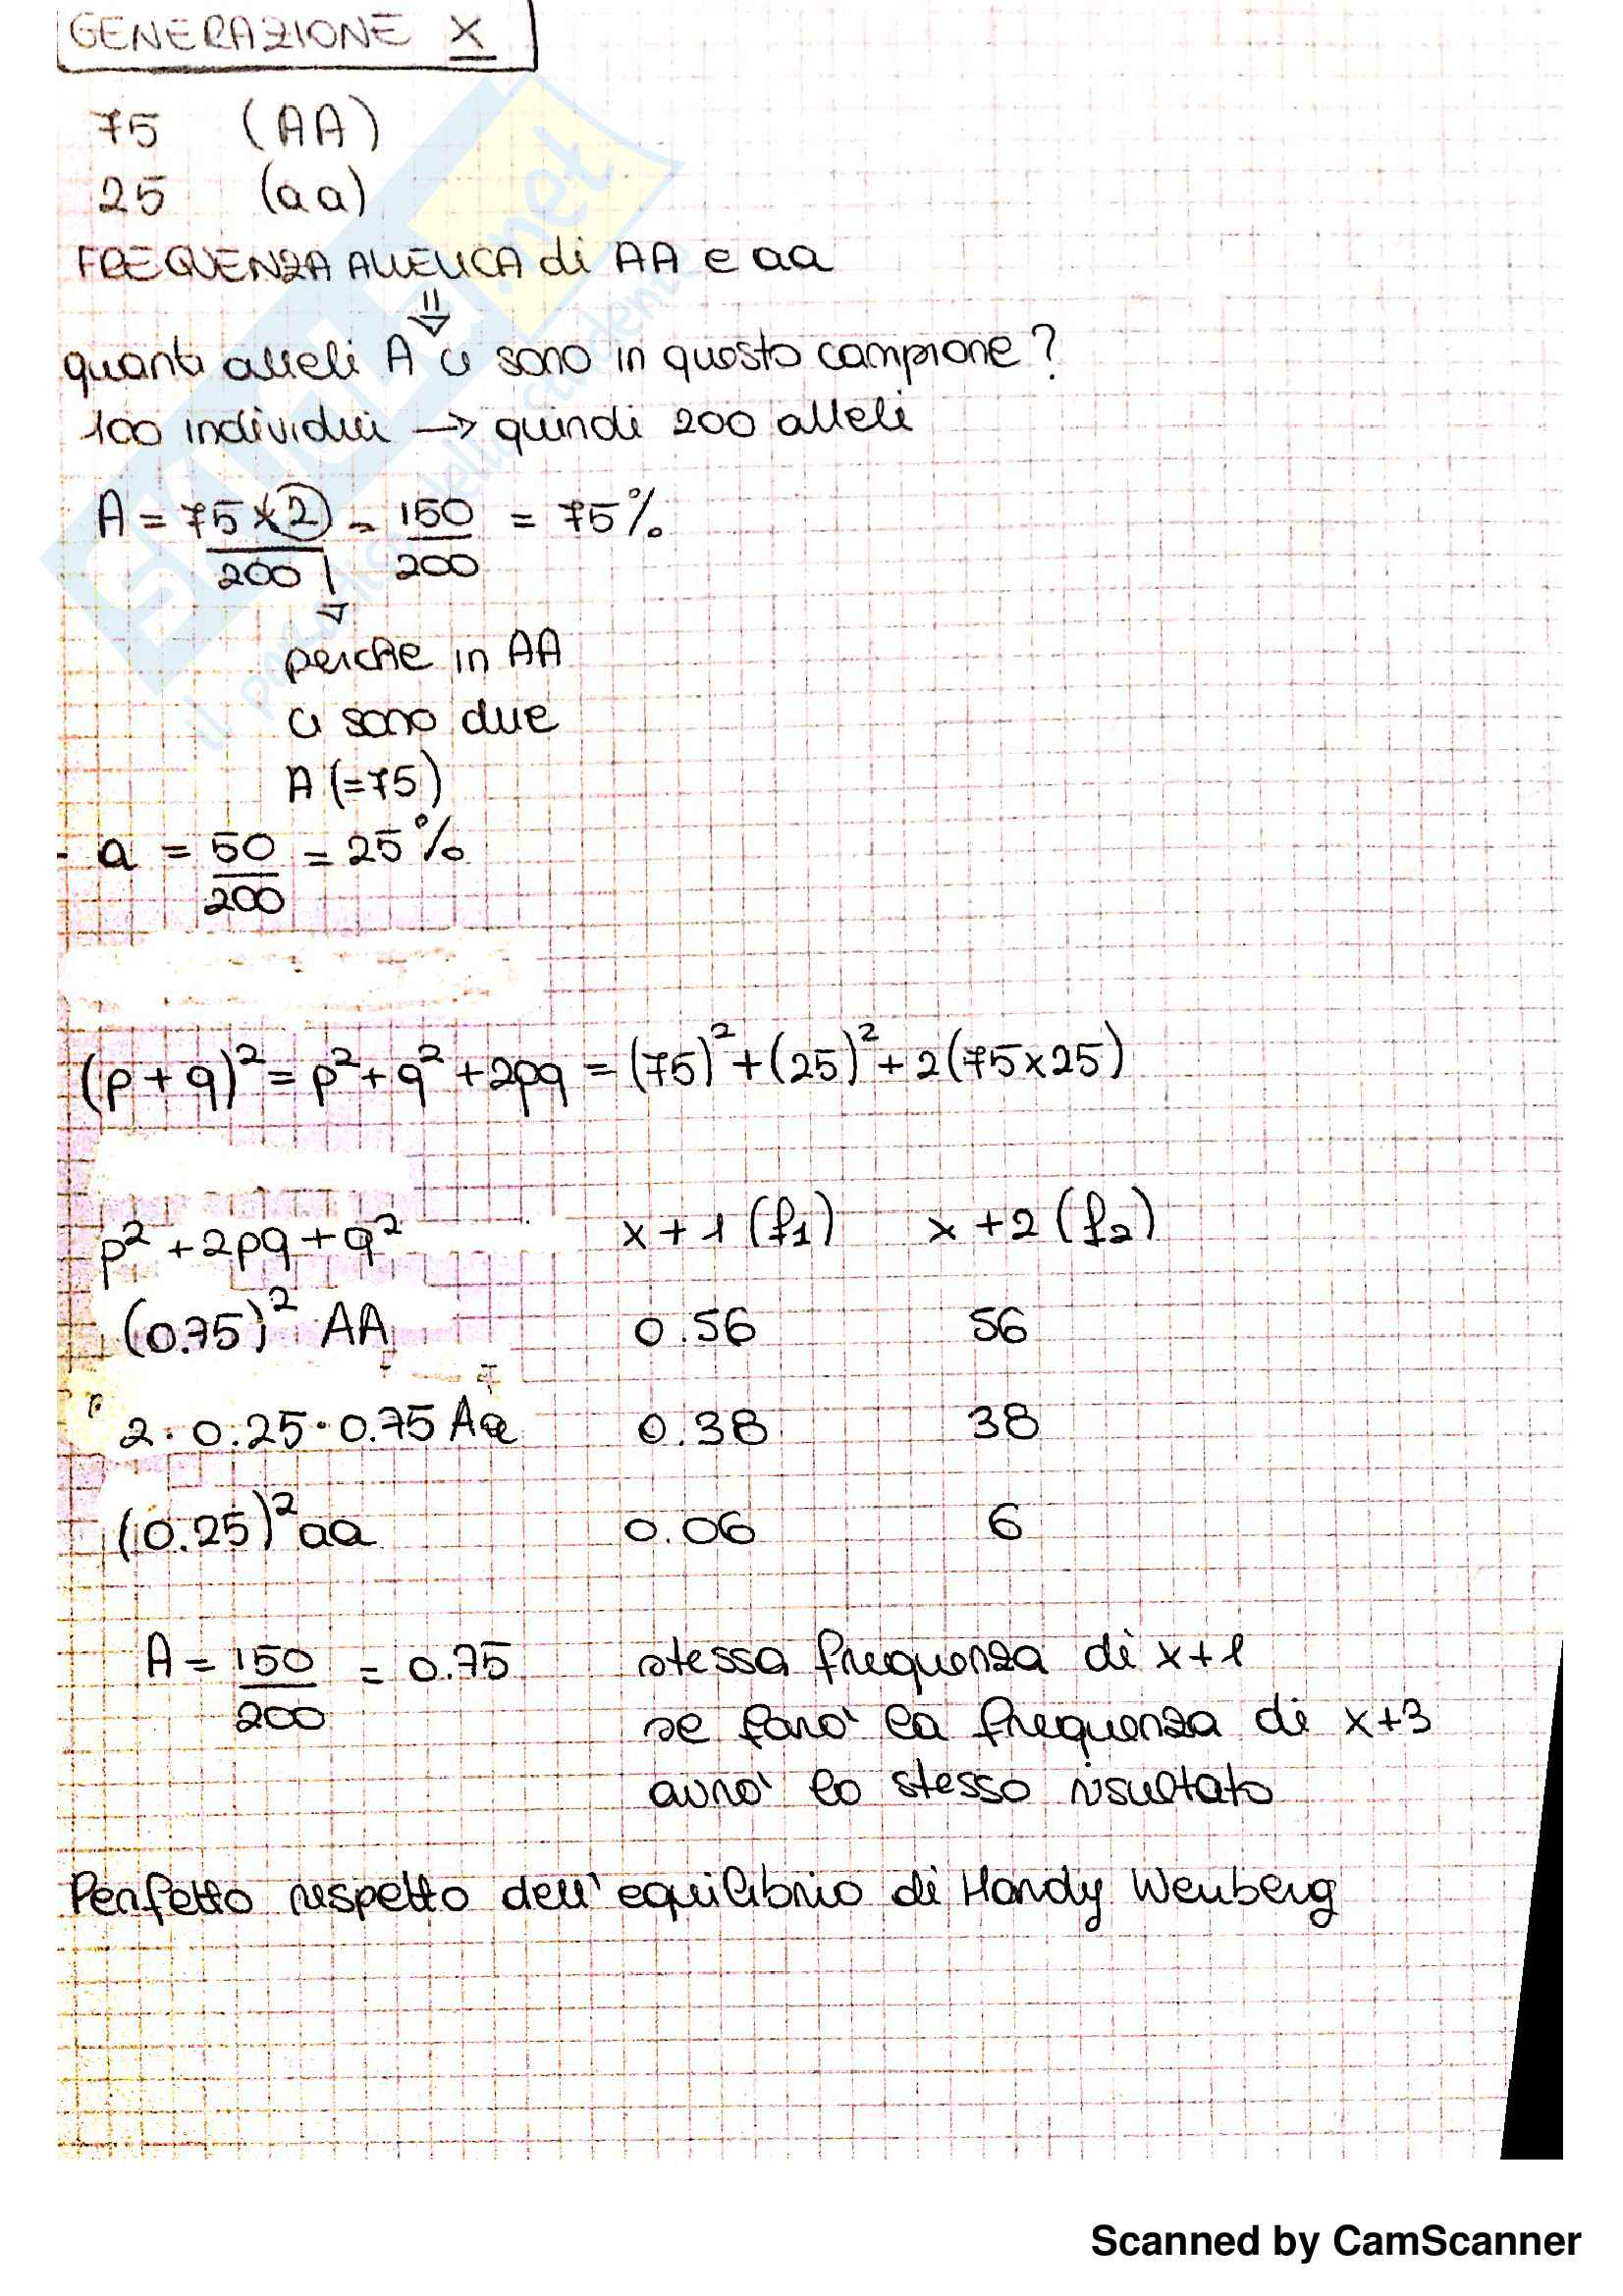 GENERAZIONE X
75 (AA)
25 (aa)
FREQUENZA ALLELICA di AA e aa
quanti alleli A ci sono in questo campione?
100 individui → quindi 200 alleli
A = 75x2/200 = 150/200 = 75%
perche in AA
ci sono due
A (=75)
- a = 50/200 = 25%
(p+q)² = p²+q²+2pq = (75)²+(25)²+2(75x25)
p²+2pq+q² x+1 (f1) x+2 (f2)
(0.75)² AA 0.56 56
2·0.25·0.75 Aa 0.38 38
(0.25)² aa 0.06 6
A = 150/200 = 0.75 stessa frequenza di x+1
se farò la frequenza di x+3
avrò lo stesso risultato
Perfetto rispetto dell'equilibrio di Hardy Weinberg
Scanned by CamScanner